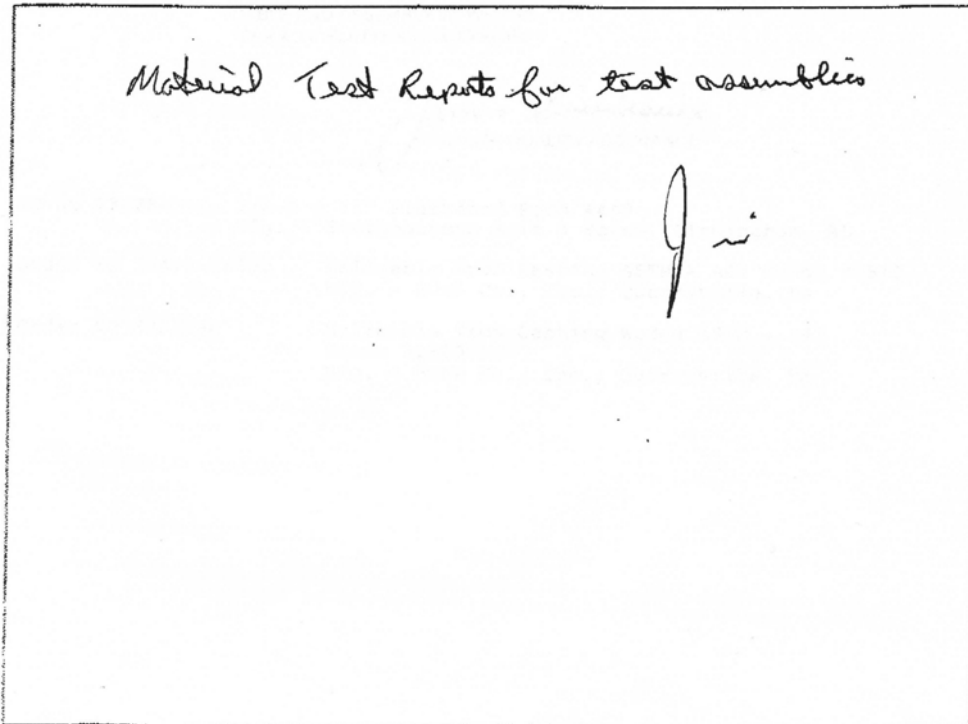 Material Test Reports for test assemblies